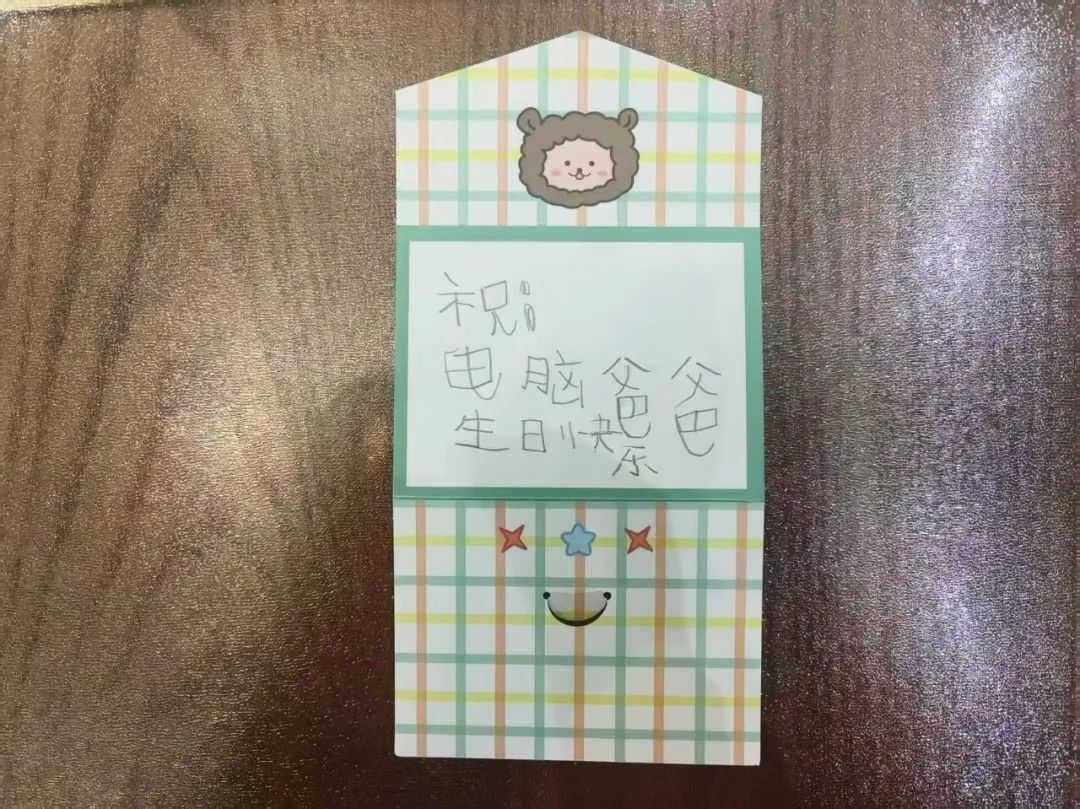 祝：
电脑爸爸
生日快乐